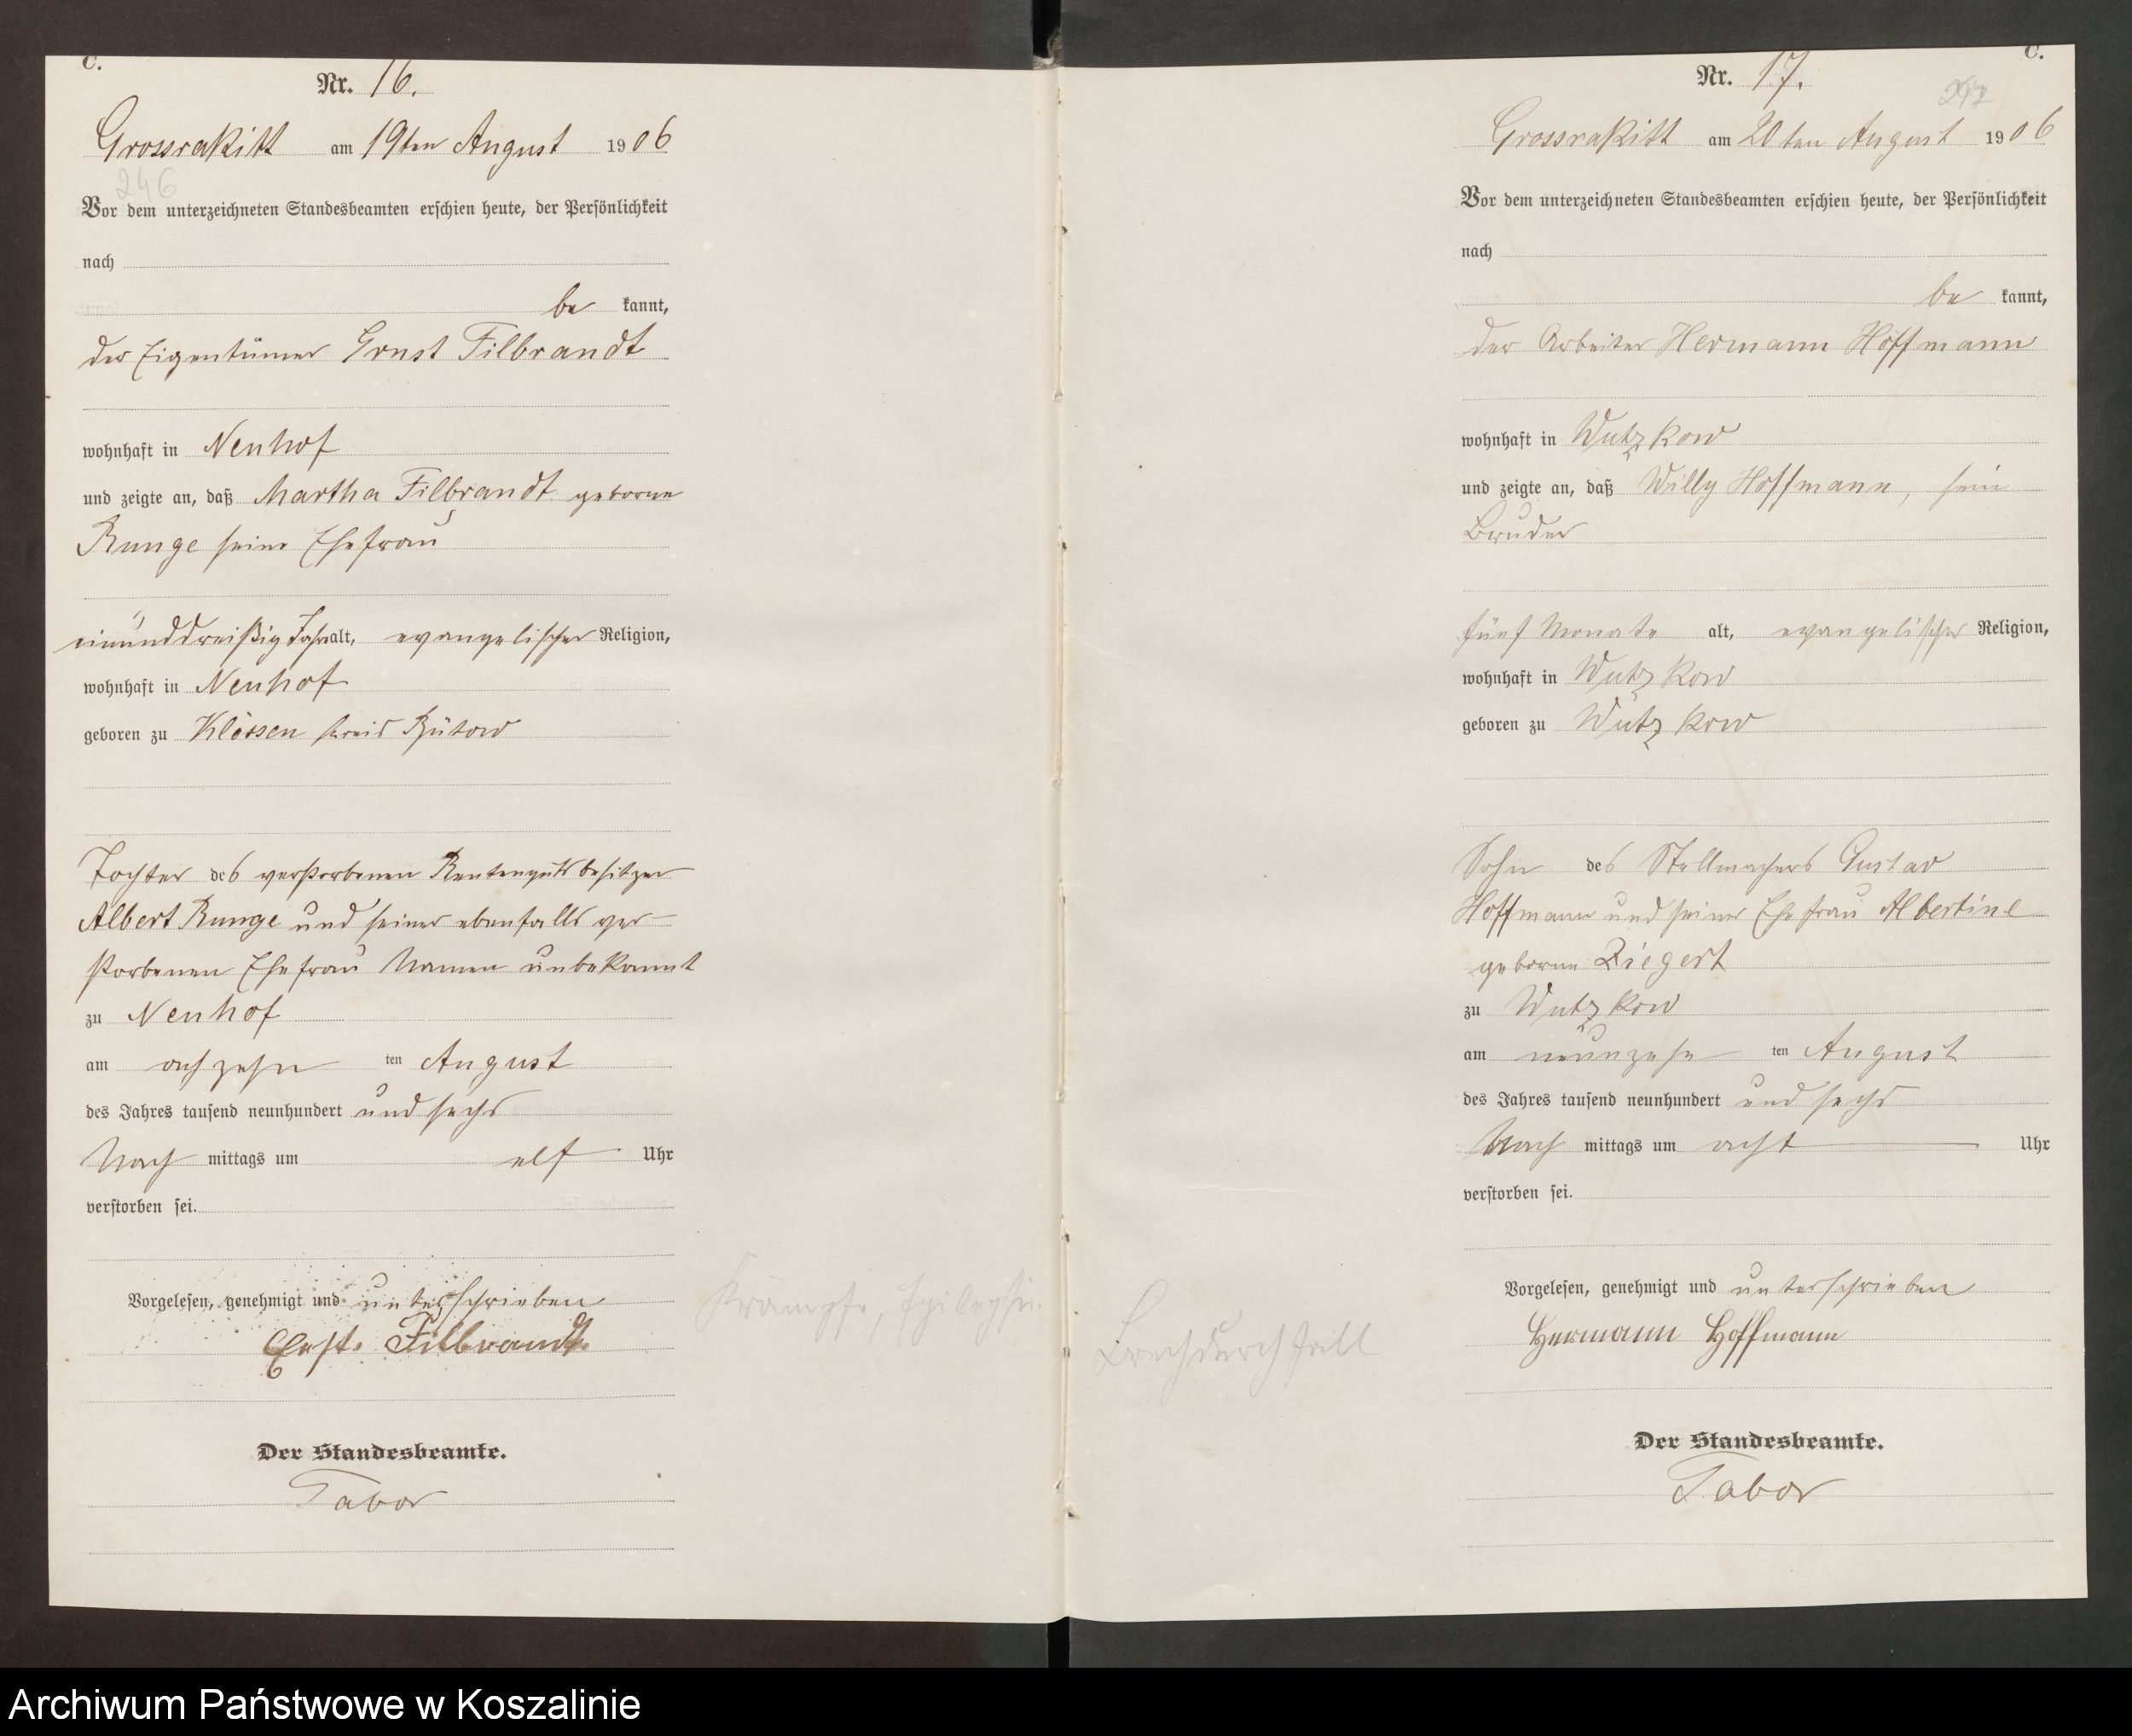 C.
Nr. 16.
Grossrakitt am 19ten August 1906
246
Vor dem unterzeichneten Standesbeamten erschien heute, der Persönlichkeit
nach
be kannt,
der Eigentümer Ernst Filbrandt
wohnhaft in Neuhof
und zeigte an, daß Martha Filbrandt geborne
Runge seine Ehefrau
einunddreißig Jahr alt, evangelischer Religion,
wohnhaft in Neuhof
geboren zu Klössen Kreis Bütow
Tochter des verstorbenen Rentengutsbesitzer
Albert Runge und seiner ebenfalls ver-
storbenen Ehefrau Namen unbekannt
zu Neuhof
am achzehn ten August
des Jahres tausend neunhundert und sechs
Nach mittags um elf Uhr
verstorben sei.
Vorgelesen, genehmigt und unterschrieben
Ernst Filbrandt.
Krämpfe, Epilepsie.
Der Standesbeamte.
Tabor
C.
Nr. 17.
247
Grossrakitt am 20ten August 1906
Vor dem unterzeichneten Standesbeamten erschien heute, der Persönlichkeit
nach
be kannt,
der Arbeiter Hermann Hoffmann
wohnhaft in Wutzkow
und zeigte an, daß Willy Hoffmann, sein
Bruder
fünf Monate alt, evangelischer Religion,
wohnhaft in Wutzkow
geboren zu Wutzkow
Sohn des Stellmachers Gustav
Hoffmann und seiner Ehefrau Albertine
geborne Ziegert
zu Wutzkow
am neunzehn ten August
des Jahres tausend neunhundert und sechs
Nach mittags um acht Uhr
verstorben sei.
Vorgelesen, genehmigt und unterschrieben
Hermann Hoffmann
Brechdurchfall
Der Standesbeamte.
Tabor
Archiwum Państwowe w Koszalinie